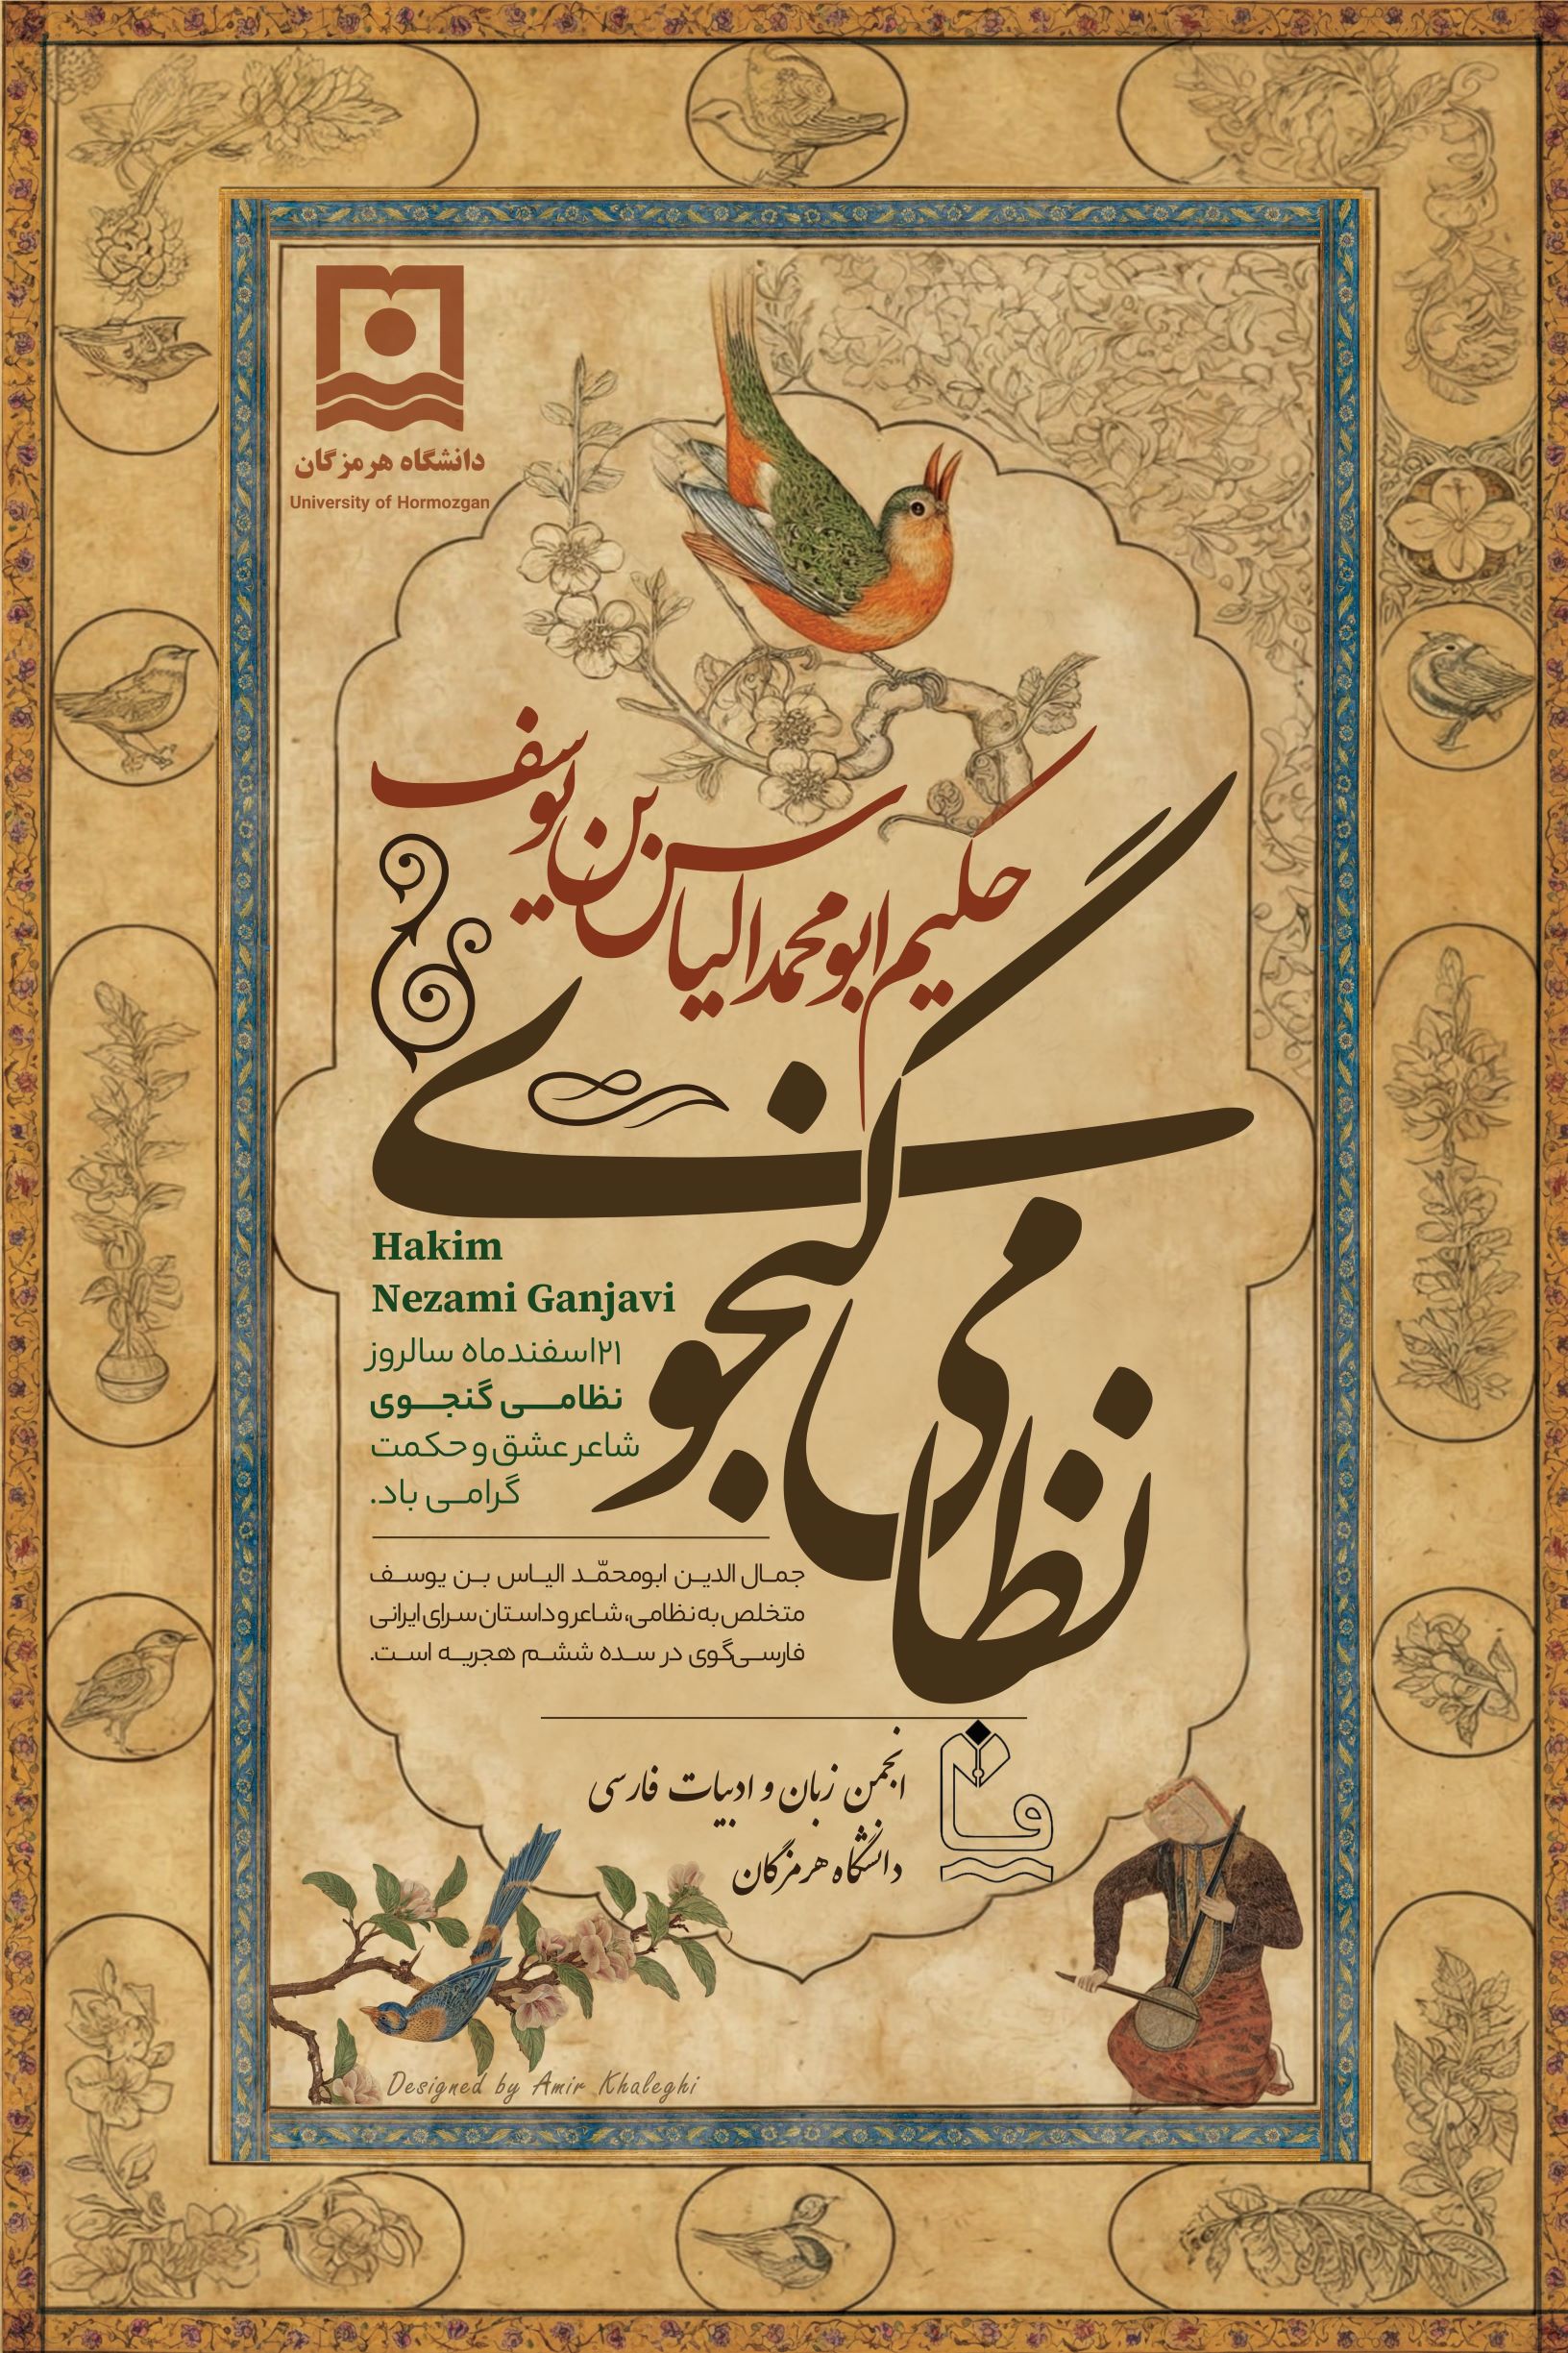 دانشگاه هرمزگان
University of Hormozgan
حکیم ابومحمد الیاس بن یوسف
نظامی گنجوی
Hakim
Nezami Ganjavi
۲۱اسفندماه سالروز
نظامـــی گنجـــوی
شاعر عشق و حکمت
گرامـی باد.
جمـال الدیـن ابومحمّـد الیـاس بـن یوسـف
متخلص به نظامی، شاعر و داستان سرای ایرانی
فارسـی‌گوی در سـده ششـم هجریـه اسـت.
انجمن زبان و ادبیات فارسی
دانشگاه هرمزگان
فا
Designed by Amir Khaleghi